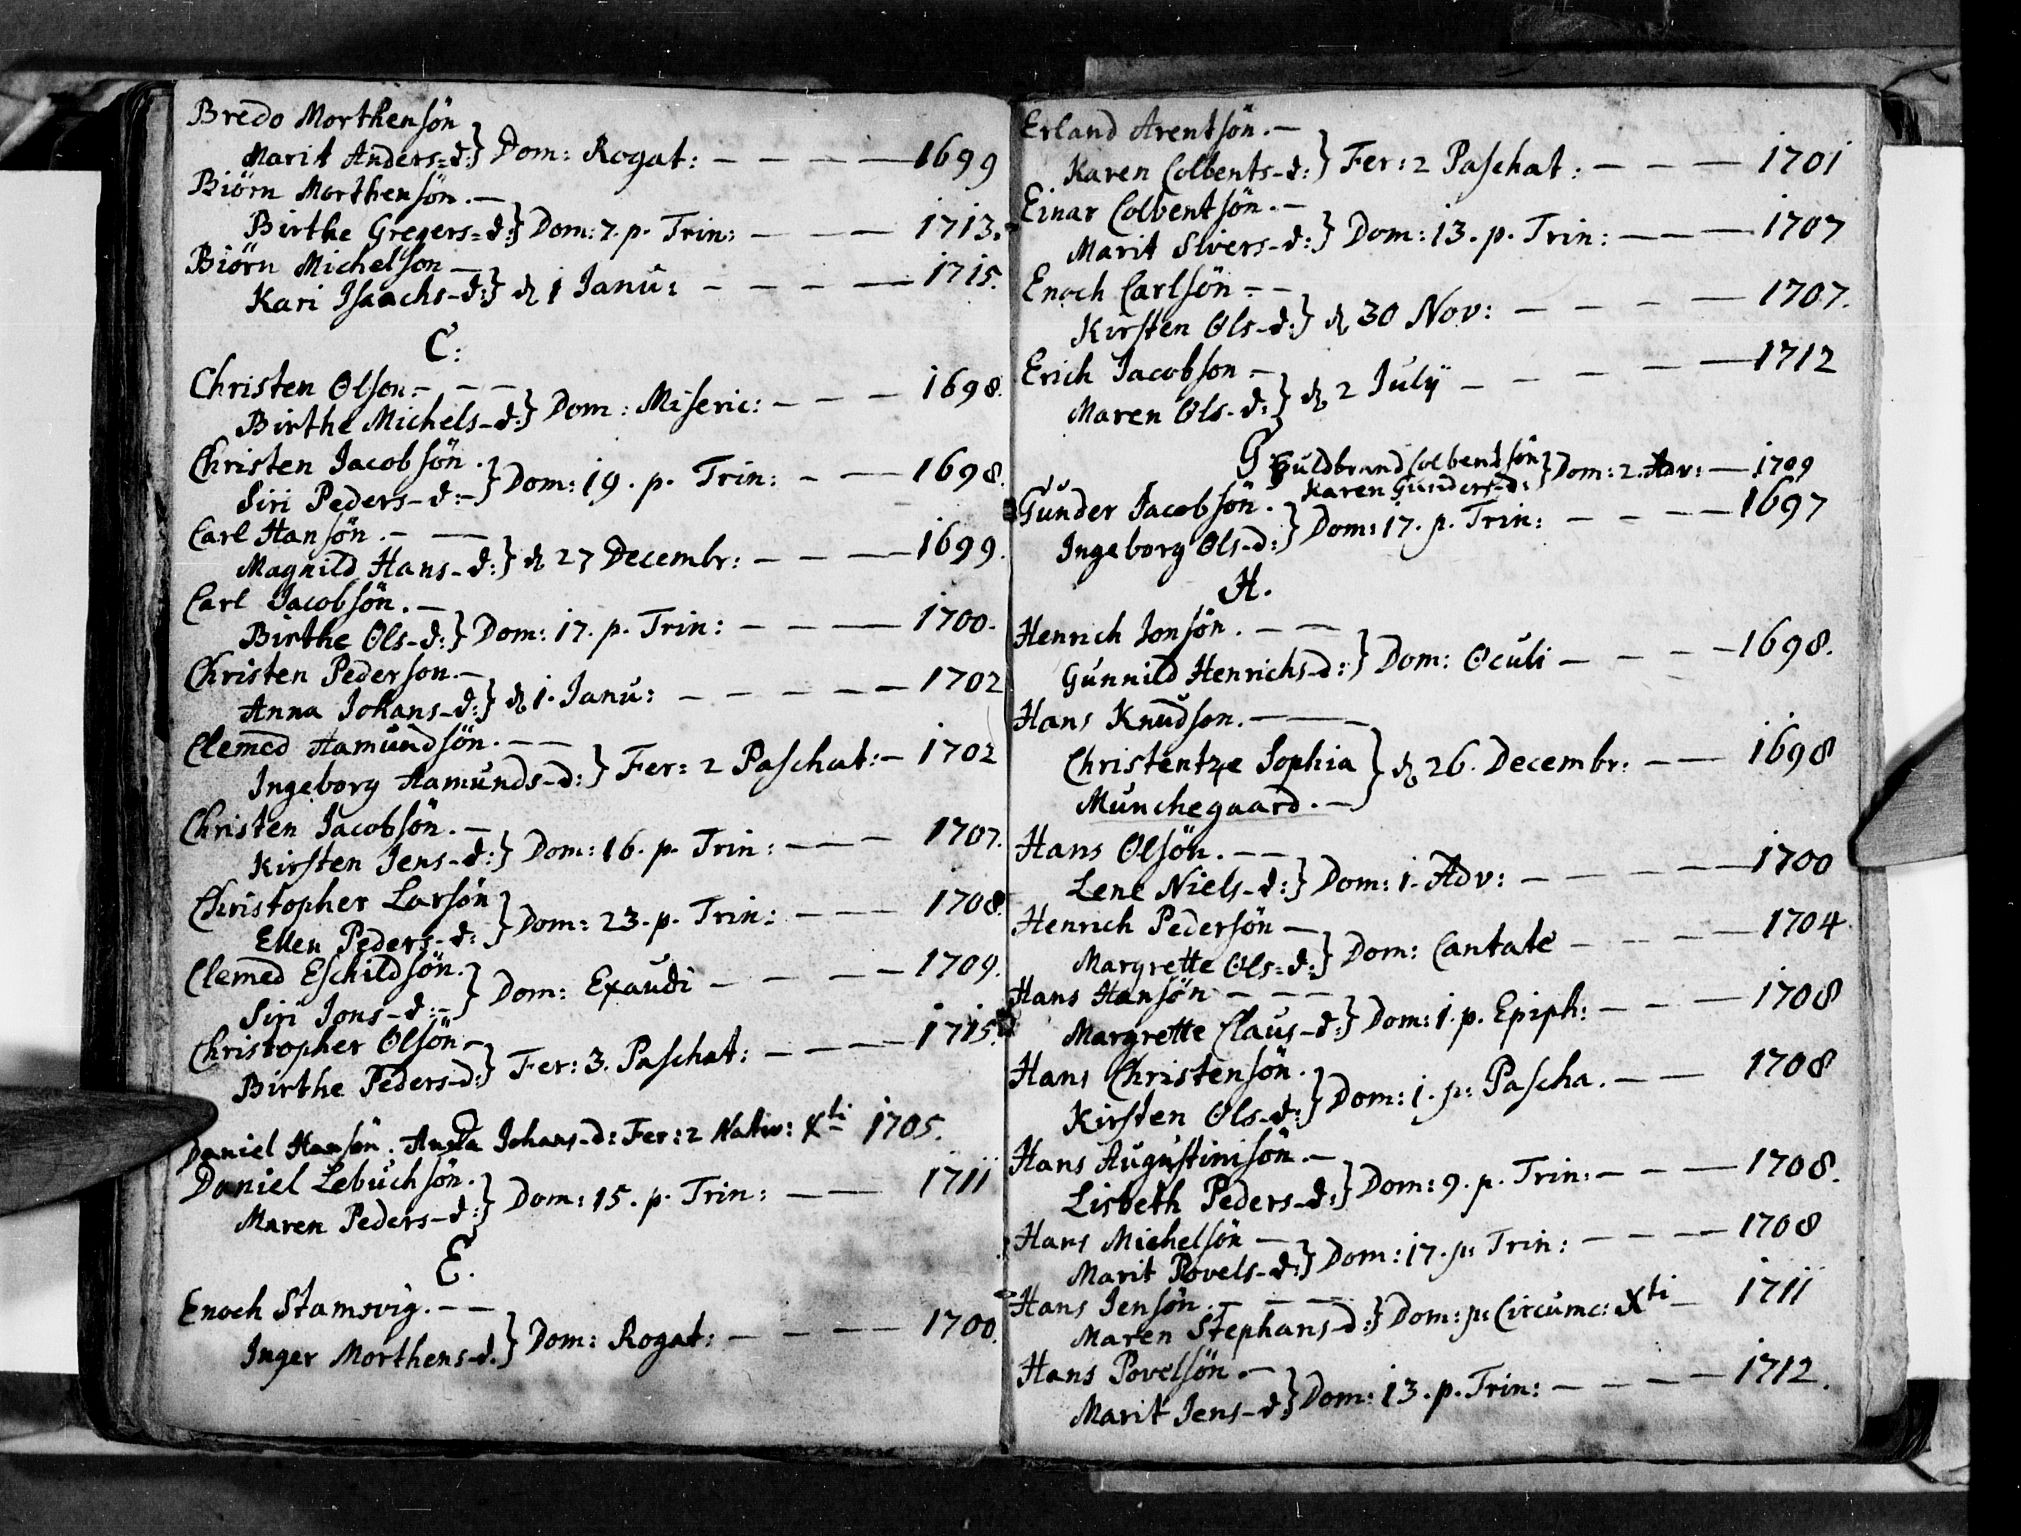 Bredo Morthensön
Marit Anders=d:} Dom: Rogat: — — — — 1699
Biörn Morthensön. —
Birthe Gregers=d:} Dom: 7. p. Trin: — — — 1713.
Biörn Michelson —
Kari Isaachs-d:} d. 1 Janu: — — — — 1715.
C:
Christen Olson. — — —
Birthe Michels-d:} Dom: Miseric: — — — 1698.
Christen Jacobsön.
Siri Peders-d:-} Dom: 19. p. Trin: — — — 1698.
Carl Hansön. — —
Magnild Hans-d:} d. 27 Decembr: — — — 1699.
Carl Jacobsön. —
Birthe Ols-d:} Dom: 17. p. Trin: — — — — 1700.
Christen Pederson. —
Anna Johans-d:} d. 1. Janu: — — — — — 1702
Clemed Aamundsön. — —
Ingeborg Aamunds-d:} Fer: 2 Paschat: — 1702
Christen Jacobsön. —
Kirsten Jens-d:} Dom: 16. p. Trin: — — — 1707.
Christopher Larsön
Ellen Peders-d:} Dom: 23. p. Trin: — — — 1708.
Clemed Eschildsön.
Siri Jons-d:-} Dom: Exaudi — — — — 1709.
Christopher Olsön —
Birthe Peders-d:} Fer: 3. Paschat: — — — — 1715.
D
Daniel Hansön. Anna Johans-d: Fer: 2 Nativ: Xti 1705.
Daniel Lebuchsön.
Maren Peders-d:} Dom: 15. p. Trin: — — 1711
E.
Enoch Stamsvig. — —
Inger Morthens-d.} Dom: Rogat: — — — — 1700.
Erland Arentsön. —
Karen Colbents-d:} Fer: 2 Paschat: — — — 1701
Einar Colbentsön. —
Marit Sivers-d:} Dom: 13. p. Trin: — — — 1707
Enoch Carlsön — —
Kirsten Ols-d:} d. 30 Nov: — — — — 1707.
Erich Jacobson —
Maren Ols-d:} d. 2 Julÿ — — — — — 1712
G
Guldbrand Colbentsön
Karen Gunders-d:} Dom: 2. Adv: — 1709
Gunder Jacobsön.
Ingeborg Ols-d:} Dom: 17. p. Trin: — — — — 1697
H.
Henrich Jonsön. — —
Gunnild Henrichs-d:} Dom: Oculi — — — — 1698.
Hans Knudson. — — —
Christentze Sophia } d. 26. Decembr: — — 1698
Munchegaard. —
Hans Olsön. — —
Lene Niels-d:} Dom: 1. Adv: — — — — — 1700
Henrich Pedersön —
Margrette Ols=d:} Dom: Cantate — — — — 1704.
Hans Hansön — — —
Margrette Claus-d:} Dom: 1. p. Epiph: — — — 1708
Hans Christensön.
Kirsten Ols-d:} Dom: 1. p: Pascha. — — 1708
Hans Augustinisön. —
Lisbeth Peders-d:} Dom: 9. p. Trin: — — — 1708.
Hans Michelsön —
Marit Povels-d:} Dom: 17. p: Trin: — — — — 1708
Hans Jensön. — — —
Maren Stephans-d:} Dom: p: Circumc: Xti — 1711
Hans Povelsön. —
Marit Jens-d:} Dom: 13. p. Trin: — — — — 1712.